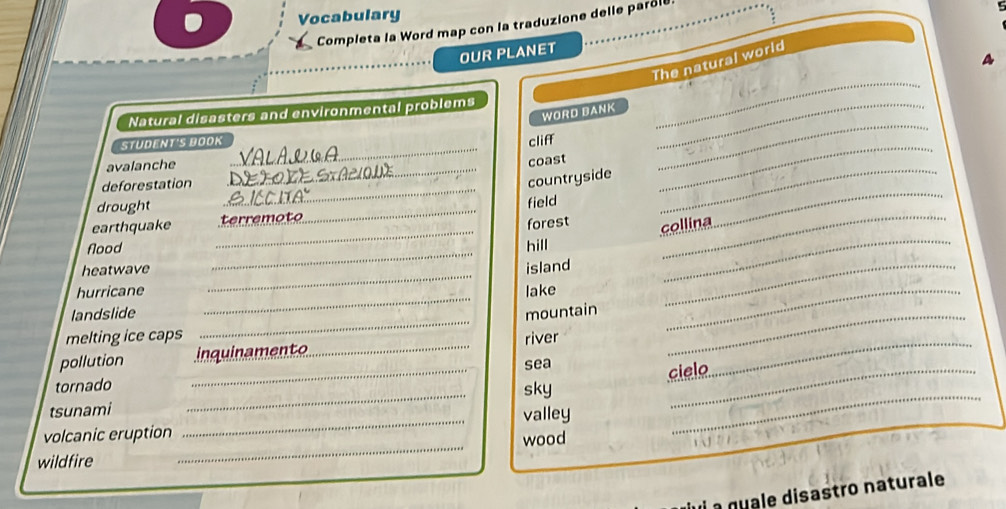 6 Vocabulary
Completa la Word map con la traduzione delle
OUR PLANET
4
Natural disasters and environmental problems
STUDENT'S BOOK
avalanche VALANGA
deforestation DEFORESTAZIONE
drought SICCITA'
earthquake terremoto
flood
heatwave
hurricane
landslide
melting ice caps
pollution inquinamento
tornado
tsunami
volcanic eruption
wildfire
The natural world
WORD BANK
cliff
coast
countryside
field
forest
hill collina
island
lake
mountain
river
sea
sky cielo
valley
wood
a quale disastro naturale